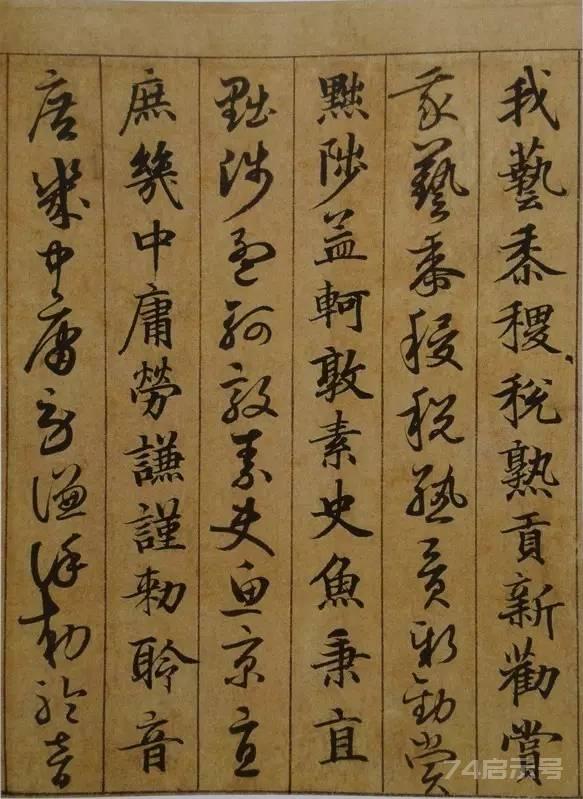 我藝黍稷稅熟貢新勸賞
我藝黍稷稅熟貢新勸賞
黜陟孟軻敦素史魚秉直
黜陟孟軻敦素史魚秉直
庶幾中庸勞謙謹勅聆音
庶幾中庸勞謙謹勅聆音
74启示号